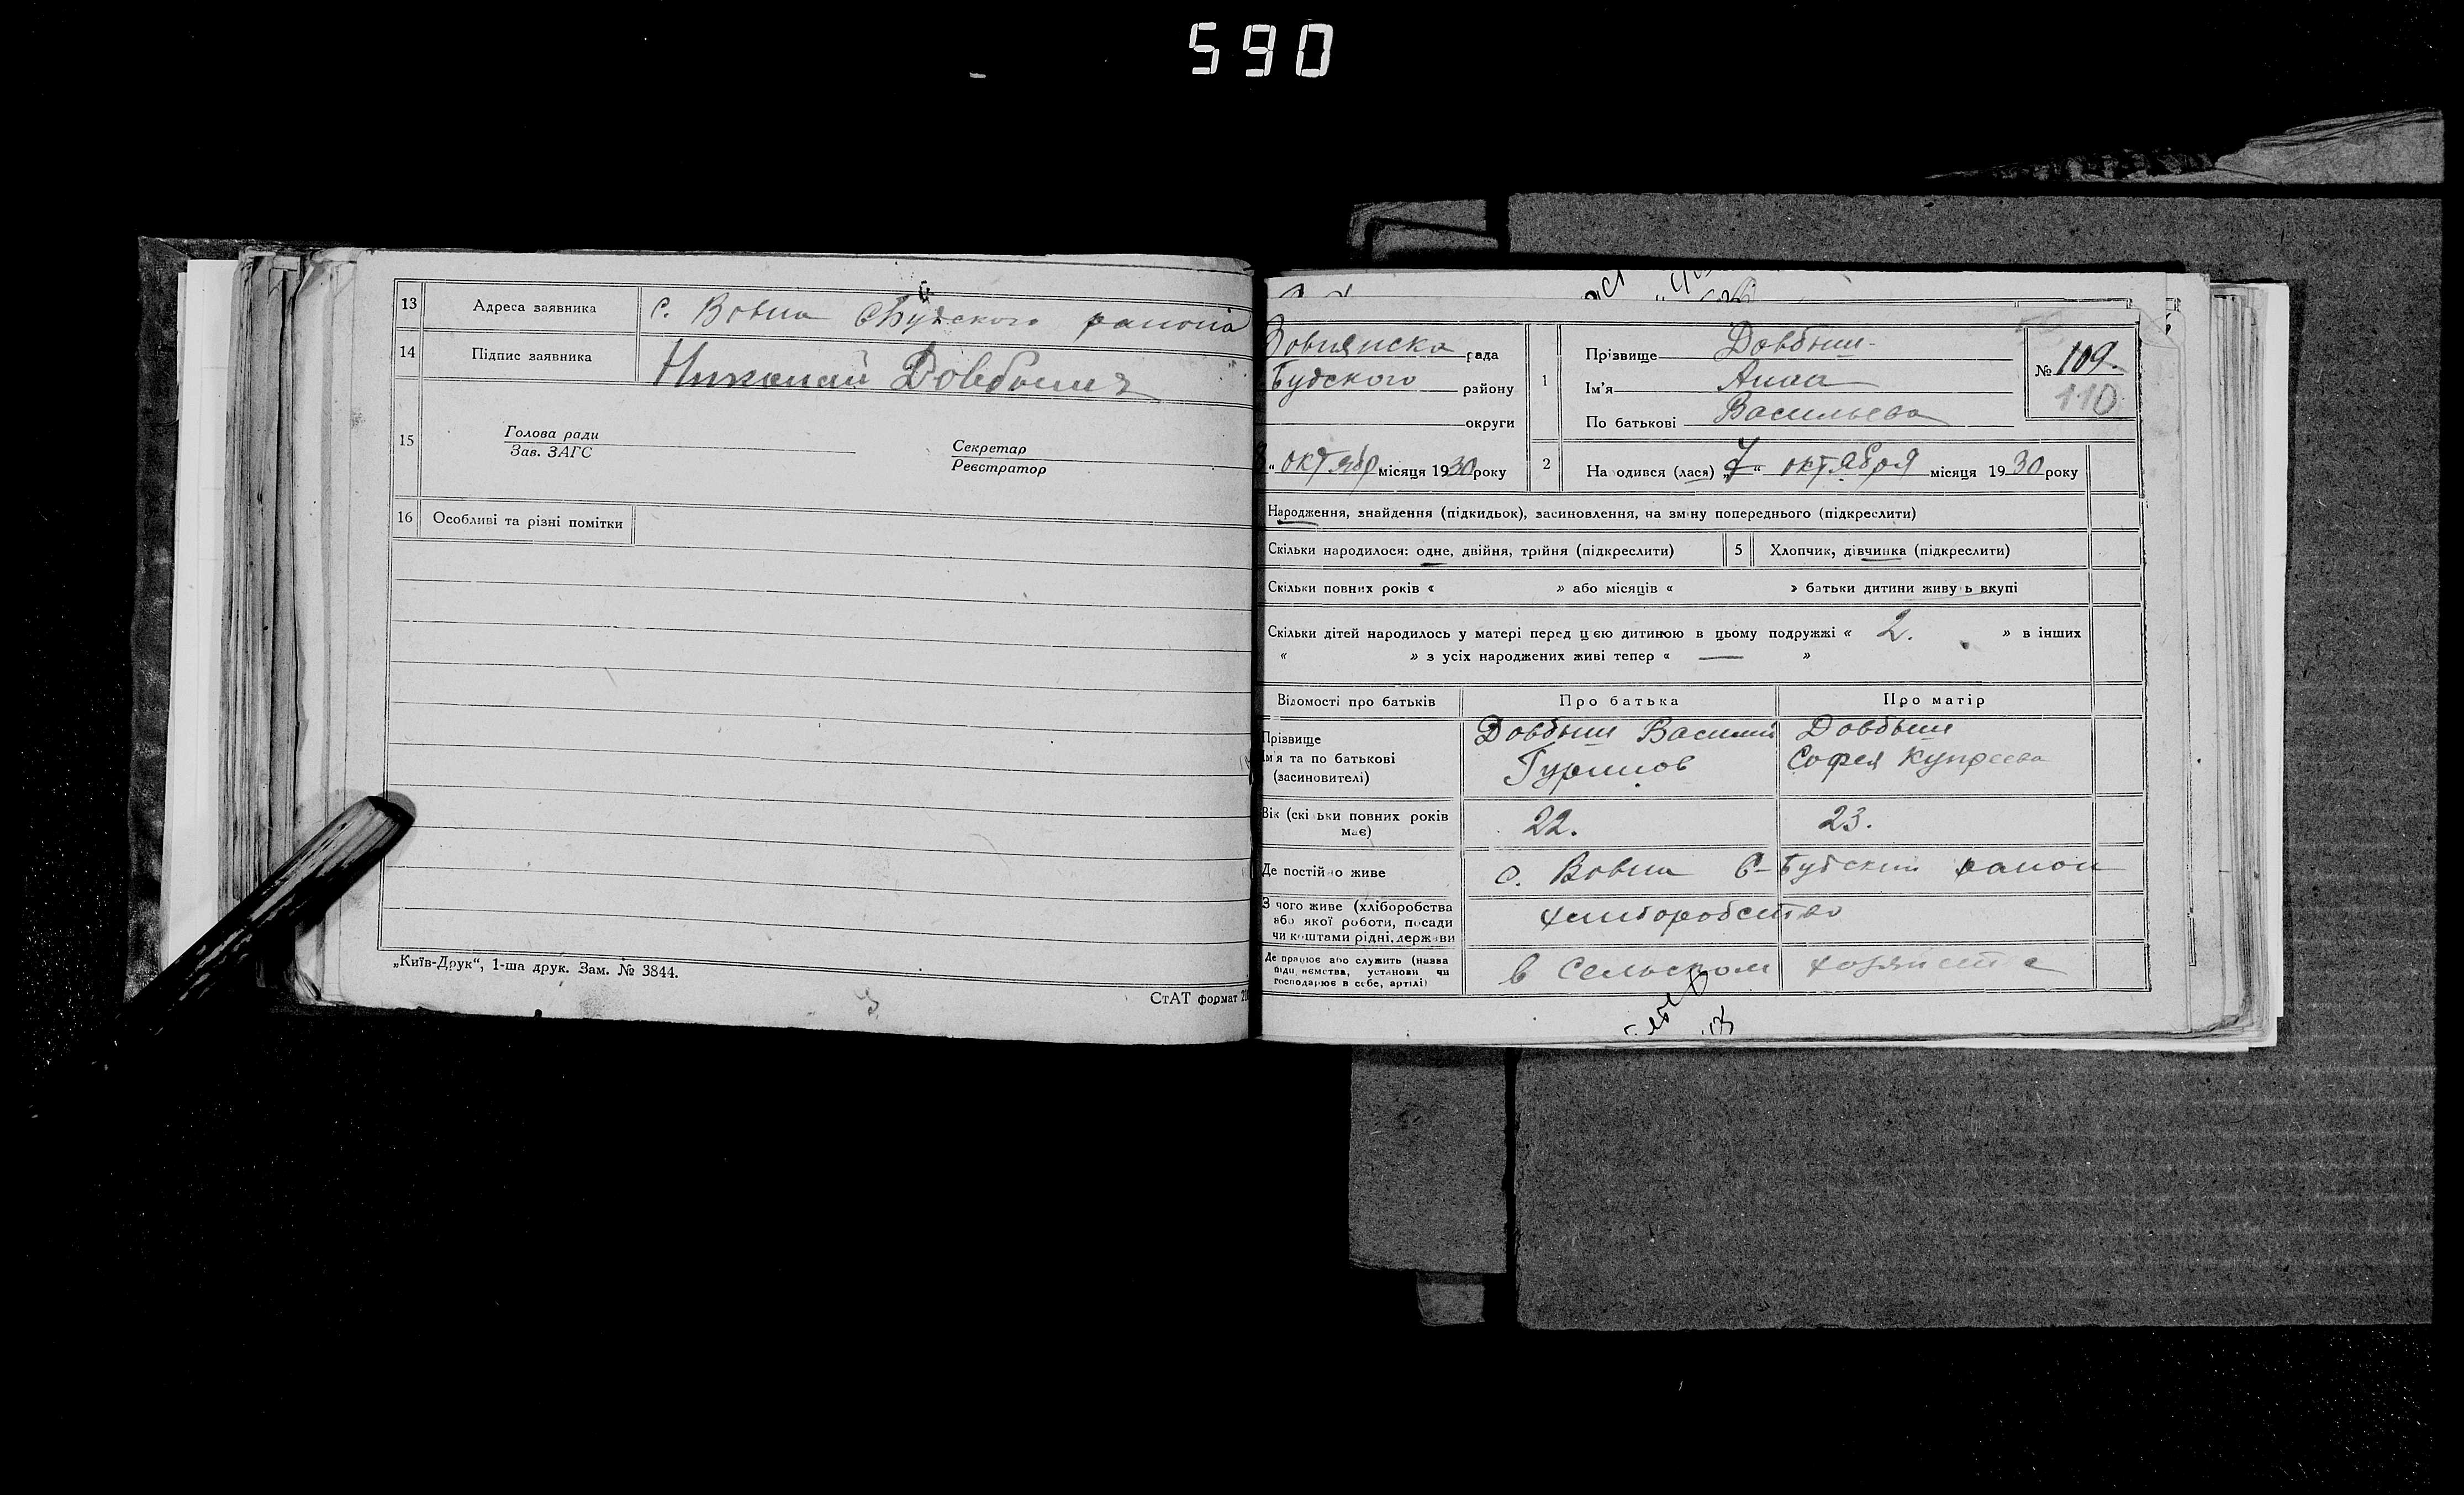 590
13 Адреса заявника с. Вовна СБудского района
14 Підпис заявника Николай Довбыш
15 Голова ради
Зав. ЗАГС
Секретар
Реєстратор
16 Особливі та різні помітки
„Київ-Друк“, 1-ша друк. Зам. № 3844.
СтАТ формат
Вовнянска рада
Будского району
округи
“ октябр місяця 1930 року
1 Прізвище Довбыш
Ім’я Анна
По батькові Васильева
№ 109.
110
2 На одився (лася) „7“ октября місяця 1930 року
Народження, знайдення (підкидьок), засиновлення, на зміну попереднього (підкреслити)
Скільки народилося: одне, двійня, трійня (підкреслити) 5 Хлопчик, дівчинка (підкреслити)
Скільки повних років « » або місяців « » батьки дитини живу ь вкупі
Скільки дітей народилось у матері перед цією дитиною в цьому подружжі « 2. » в інших
« » з усіх народжених живі тепер « — »
Відомості про батьків Про батька Про матір
Прізвище Довбыш Василий Довбыш
Ім’я та по батькові Гуринов Софея Купреева
(засновителі)
Вік (скі ьки повних років має) 22. 23.
Де постійно живе с. Вовна С-Будский район
З чого живе (хліборобства або якої роботи, посади чи коштами рідні, держави хлиборобство
Де працює або служить (назва підприємства, установи чи господарює в себе, артілі) в Сельском хозяйстве